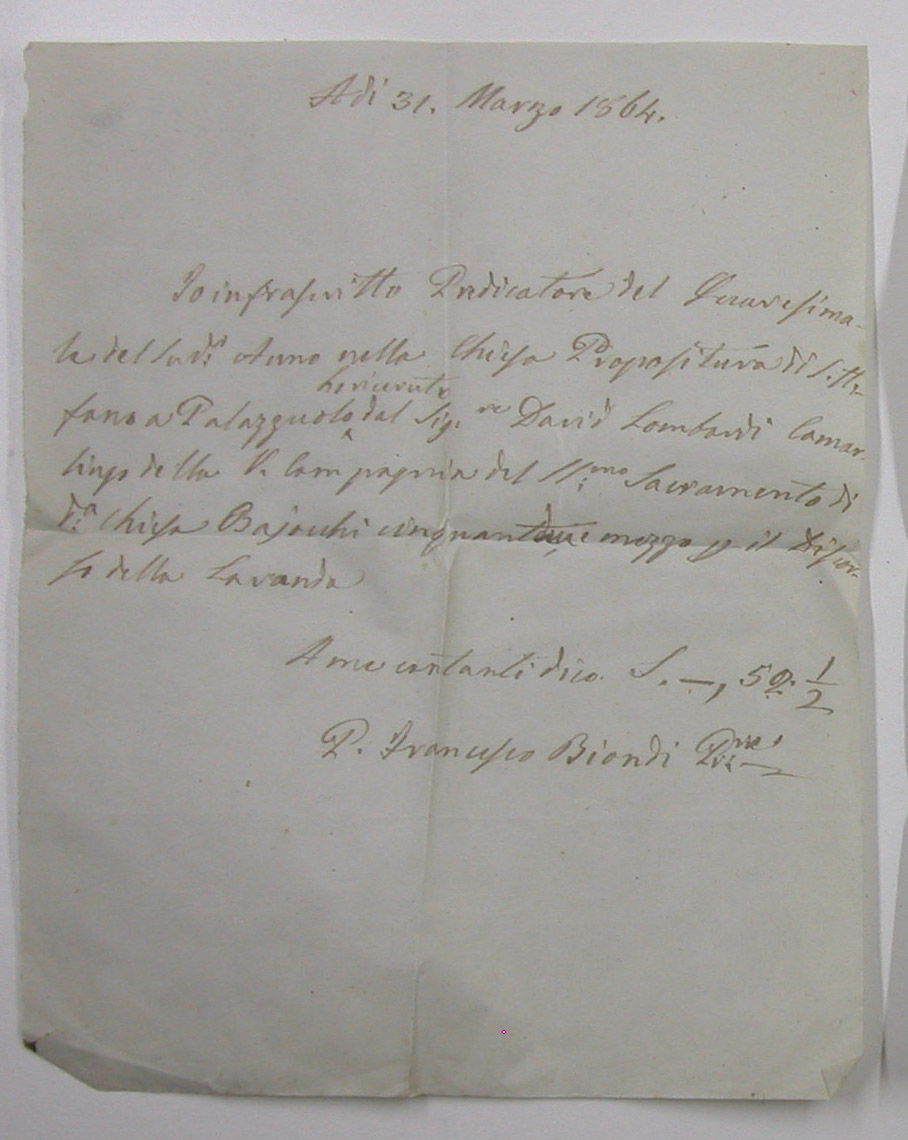 Adi 31. Marzo 1864.
Io infrascritto Predicatore del Quaresima-
le del sud.º Anno nella Chiesa Propositura di S. Ste-
ho ricevuto
fano a Palazzuolo dal Sig.re David Lombardi Camar-
lingo della V. Compagnia del SS.mo Sacramento di
d.a Chiesa Bajocchi cinquantadue e mezzo p il Discor-
so della Lavanda
A me contanti dico S. —, 52. 1/2
P. Francesco Biondi